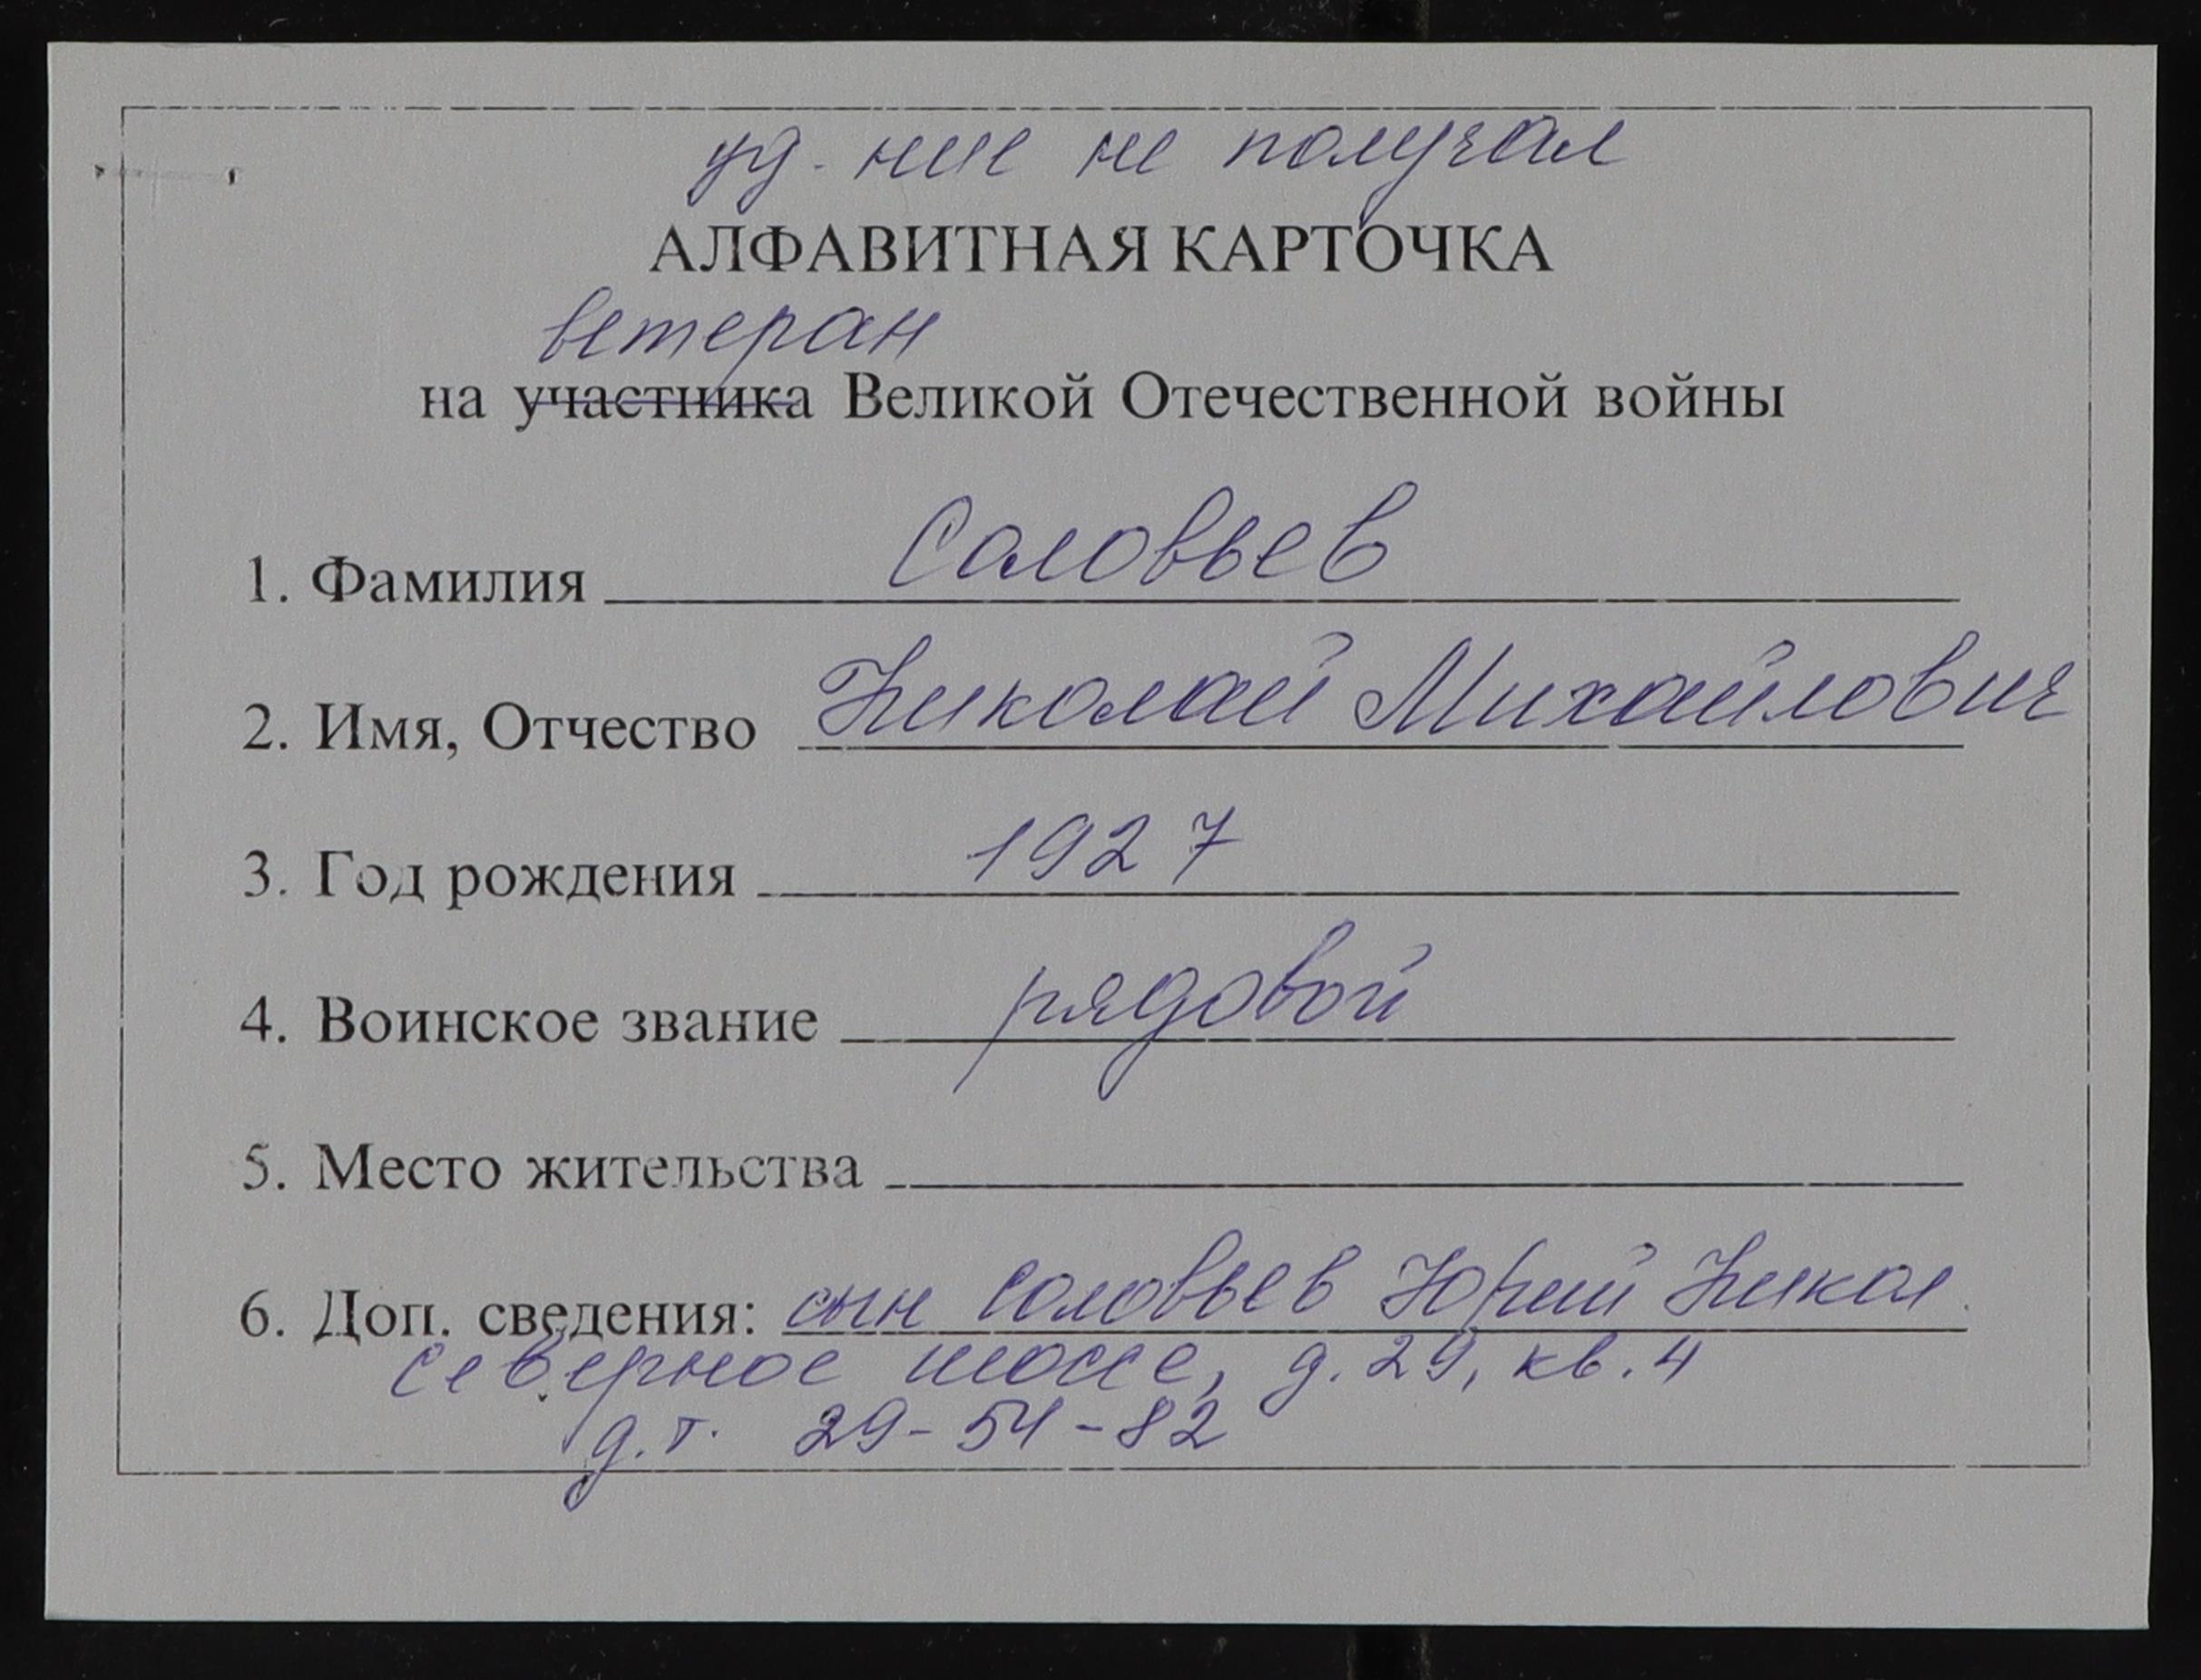 уд-ние не получал
АЛФАВИТНАЯ КАРТОЧКА
ветеран
на участника Великой Отечественной войны
1. Фамилия Соловьев
2. Имя, Отчество Николай Михайлович
3. Год рождения 1927
4. Воинское звание рядовой
5. Место жительства
6. Доп. сведения: сын Соловьев Юрий Никол.
Северное шоссе, д. 29, кв. 4
д.т. 29-54-82